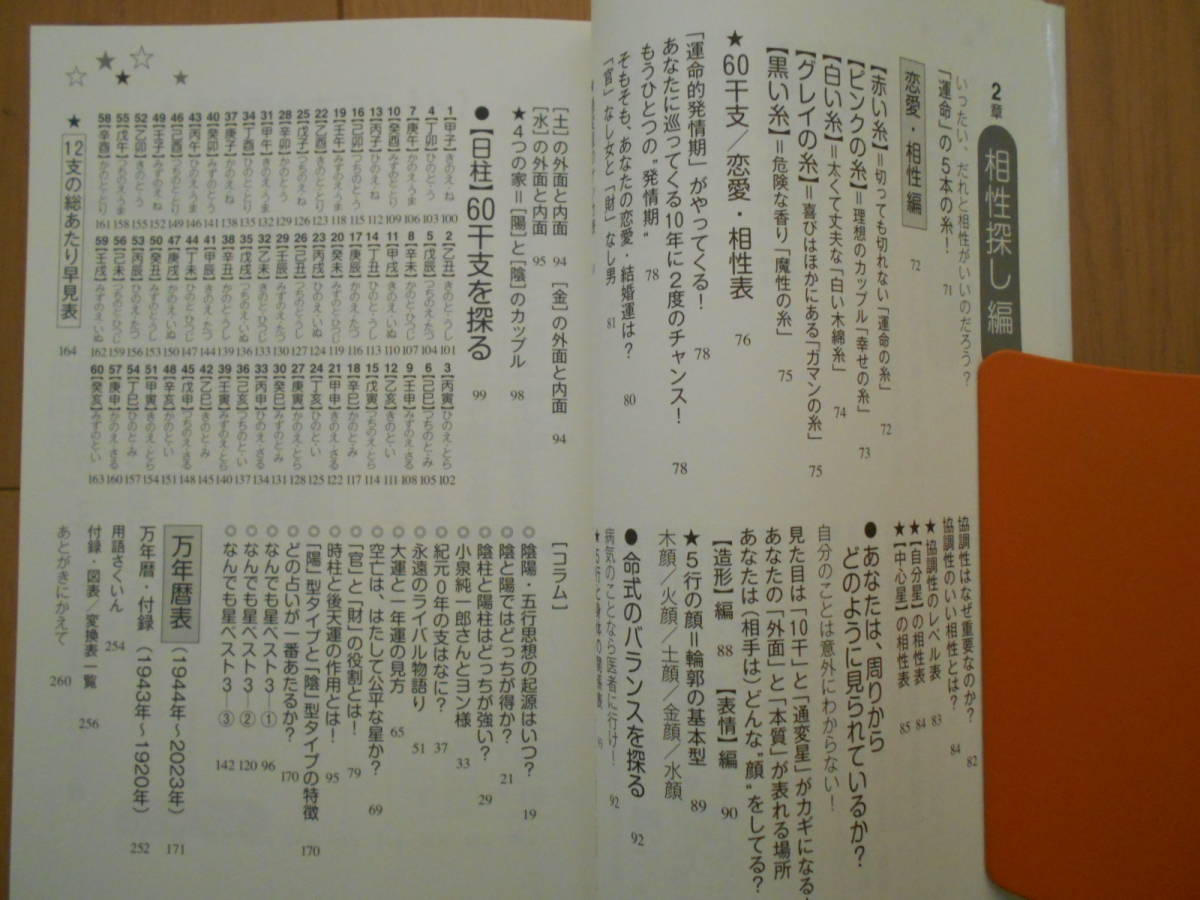 2章 相性探し編
いったい、だれと相性がいいのだろう？
「運命」の5本の糸！ 71
恋愛・相性編 72
【赤い糸】＝切っても切れない「運命の糸」 72
【ピンクの糸】＝理想のカップル「幸せの糸」 73
【白い糸】＝太くて丈夫な「白い木綿糸」 74
【グレイの糸】＝喜びはほかにある「ガマンの糸」 75
【黒い糸】＝危険な香り「魔性の糸」 75
★60干支／恋愛・相性表 76
「運命的発情期」がやってくる！ 78
あなたに巡ってくる10年に2度のチャンス！ 78
もうひとつの“発情期” 78
そもそも、あなたの恋愛・結婚運は？ 80
「官」なし女と「財」なし男 81
協調性はなぜ重要なのか？ 82
協調性のいい相性とは？ 84
★協調性のレベル表 83
★【自分星】の相性表 84
★【中心星】の相性表 85
●あなたは、周りから
どのように見られているか？
自分のことは意外にわからない！
見た目は「10干」と「通変星」がカギになる
あなたの「外面」と「本質」が表れる場所
あなたは（相手は）どんな“顔”をしてる？
【造形】編 88 【表情】編 90
★5行の顔＝輪郭の基本型 89
木顔／火顔／土顔／金顔／水顔
●命式のバランスを探る 92
病気のことなら医者に行け！ 92
［土］の外面と内面 94 ［金］の外面と内面 94
［水］の外面と内面 95
★4つの家＝［陽］と［陰］のカップル 98
●【日柱】60干支を探る 99
1【甲子】きのえ・ね 100 2【乙丑】きのと・うし 101 3【丙寅】ひのえ・とら 102
4【丁卯】ひのと・う 103 5【戊辰】つちのえ・たつ 104 6【己巳】つちのと・み 105
7【庚午】かのえ・うま 106 8【辛未】かのと・ひつじ 107 9【壬申】みずのえ・さる 108
10【癸酉】みずのと・とり 109 11【甲戌】きのえ・いぬ 110 12【乙亥】きのと・い 111
13【丙子】ひのえ・ね 112 14【丁丑】ひのと・うし 113 15【戊寅】つちのえ・とら 114
16【己卯】つちのと・う 115 17【庚辰】かのえ・たつ 116 18【辛巳】かのと・み 117
19【壬午】みずのえ・うま 118 20【癸未】みずのと・ひつじ 119 21【甲申】きのえ・さる 122
22【乙酉】きのと・とり 123 23【丙戌】ひのえ・いぬ 124 24【丁亥】ひのと・い 125
25【戊子】つちのえ・ね 126 26【己丑】つちのと・うし 127 27【庚寅】かのえ・とら 128
28【辛卯】かのと・う 129 29【壬辰】みずのえ・たつ 130 30【癸巳】みずのと・み 131
31【甲午】きのえ・うま 132 32【乙未】きのと・ひつじ 133 33【丙申】ひのえ・さる 134
34【丁酉】ひのと・とり 135 35【戊戌】つちのえ・いぬ 136 36【己亥】つちのと・い 137
37【庚子】かのえ・ね 138 38【辛丑】かのと・うし 139 39【壬寅】みずのえ・とら 140
40【癸卯】みずのと・う 141 41【甲辰】きのえ・たつ 144 42【乙巳】きのと・み 145
43【丙午】ひのえ・うま 146 44【丁未】ひのと・ひつじ 147 45【戊申】つちのえ・さる 148
46【己酉】つちのと・とり 149 47【庚戌】かのえ・いぬ 150 48【辛亥】かのと・い 151
49【壬子】みずのえ・ね 152 50【癸丑】みずのと・うし 153 51【甲寅】きのえ・とら 154
52【乙卯】きのと・う 155 53【丙辰】ひのえ・たつ 156 54【丁巳】ひのと・み 157
55【戊午】つちのえ・うま 158 56【己未】つちのと・ひつじ 159 57【庚申】かのえ・さる 160
58【辛酉】かのと・とり 161 59【壬戌】みずのえ・いぬ 162 60【癸亥】みずのと・い 163
★12支の総あたり早見表 164
［コラム］
◎陰陽・五行思想の起源はいつ？ 19
◎陰と陽ではどっちが得か？ 21
◎陰柱と陽柱はどっちが強い？ 29
◎小泉純一郎さんとヨン様 33
◎紀元0年の支はなに？ 37
◎永遠のライバル物語り 51
◎大運と一年運の見方 65
◎空亡は、はたして公平な星か？ 69
◎「官」と「財」の役割とは！ 79
◎時柱と後天運の作用とは！ 95
◎「陽」型タイプと「陰」型タイプの特徴 170
◎どの占いが一番あたるか？ 170
◎なんでも星ベスト3―① 96
◎なんでも星ベスト3―② 120
◎なんでも星ベスト3―③ 142
万年暦表（1944年～2023年） 171
万年暦・付録（1943年～1920年） 252
用語さくいん 254
付録・図表／変換表一覧 256
あとがきにかえて 260